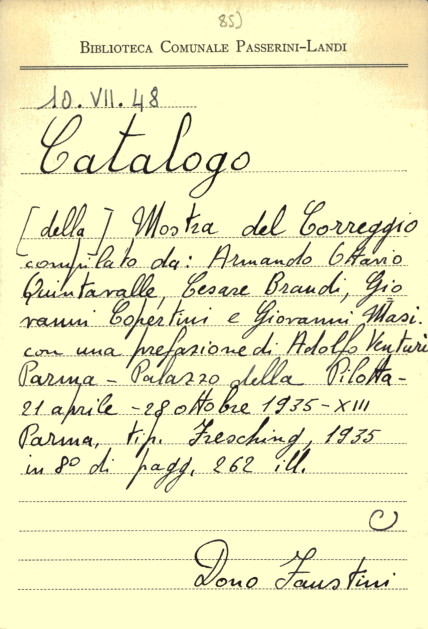 85)
BIBLIOTECA COMUNALE PASSERINI-LANDI
10. VII. 48
Catalogo
[della] Mostra del Correggio
compilato da: Armando Ottavio
Quintavalle, Cesare Brandi, Gio
vanni Copertini e Giovanni Masi.
con una prefazione di Adolfo Venturi
Parma - Palazzo della Pilotta -
21 aprile - 28 ottobre 1935 - XIII
Parma, tip. Fresching, 1935
in 8º di pagg. 262 ill.
C
Dono Faustini